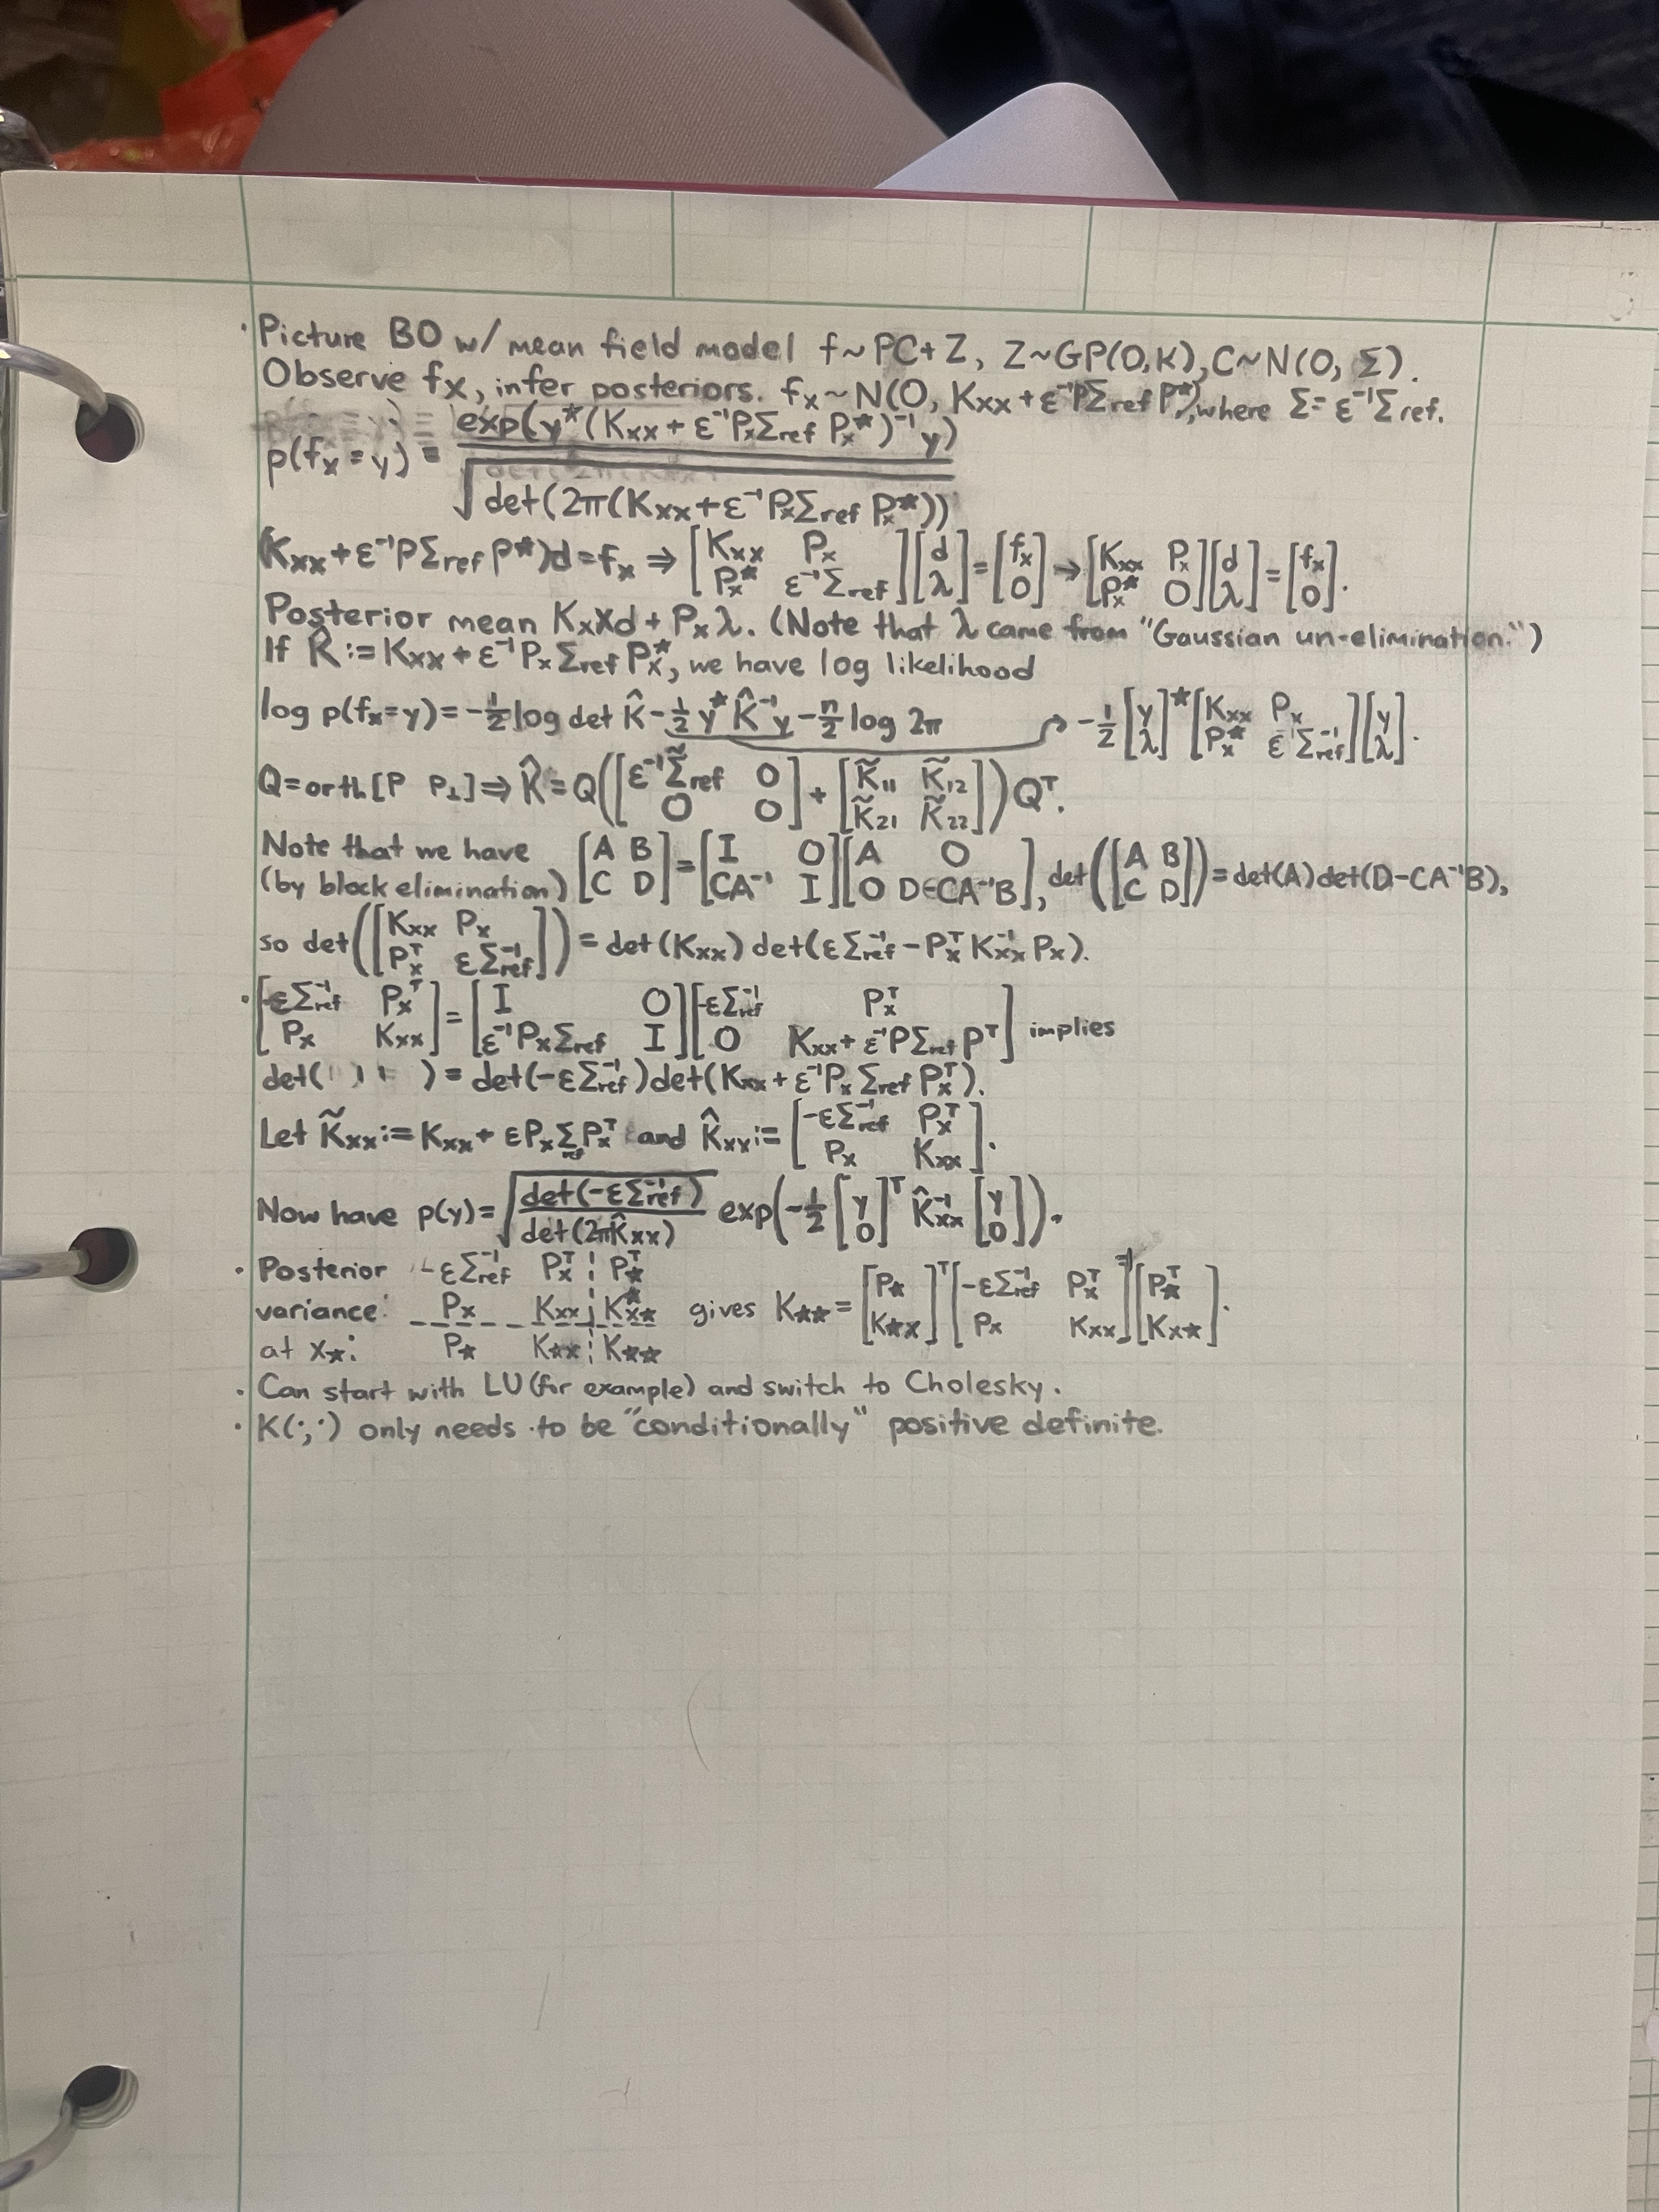 · Picture BO w/ mean field model f~PC+Z, Z~GP(0,K), C~N(0, Σ).
Observe fx, infer posteriors. fx~N(0, Kxx+ε⁻¹PΣref P*), where Σ=ε⁻¹Σref.
p(fx=y) = exp(y*(Kxx+ε⁻¹PxΣref Px*)⁻¹y) / √det(2π(Kxx+ε⁻¹PxΣref Px*))
(Kxx+ε⁻¹PΣref P*)d=fx ⇒ [Kxx Px; Px* ε⁻¹Σref][d; λ]=[fx; 0] → [Kxx Px; Px* 0][d; λ]=[fx; 0].
Posterior mean KxXd+Pxλ. (Note that λ came from "Gaussian un-elimination.")
If K̂:=Kxx+ε⁻¹PxΣref Px*, we have log likelihood
log p(fx=y)=-½log det K̂-½y*K̂⁻¹y-n/2 log 2π ↱ -½[y; λ]*[Kxx Px; Px* ε⁻¹Σref⁻¹][y; λ].
Q=orth[P P⊥]⇒K̂=Q([ε⁻¹Σ̃ref 0; 0 0]+[K̃11 K̃12; K̃21 K̃22])Qᵀ.
Note that we have
(by block elimination) [A B; C D]=[I 0; CA⁻¹ I][A 0; 0 D-CA⁻¹B], det([A B; C D])=det(A)det(D-CA⁻¹B),
so det([Kxx Px; Pxᵀ εΣref⁻¹])=det(Kxx)det(εΣref⁻¹-PxᵀKxx⁻¹Px).
· [-εΣref⁻¹ Pxᵀ; Px Kxx]=[I 0; ε⁻¹PxΣref I][-εΣref⁻¹ Pxᵀ; 0 Kxx+ε⁻¹PΣref Pᵀ] implies
det( ı ı ı )=det(-εΣref⁻¹)det(Kxx+ε⁻¹PxΣref Pxᵀ).
Let K̃xx:=Kxx+εPxΣref Pxᵀ and K̂xx:=[-εΣref⁻¹ Pxᵀ; Px Kxx].
Now have p(y)=√(det(-εΣref⁻¹)/det(2πK̂xx)) exp(-½[y; 0]ᵀK̂xx⁻¹[y; 0]).
· Posterior variance at x★: -εΣref⁻¹ Pxᵀ ¦ P★ᵀ; Px Kxx ¦ Kx★*; P★ K★x ¦ K★★ gives K★★=[P★; K★x]ᵀ[-εΣref⁻¹ Pxᵀ; Px Kxx]⁻¹[P★ᵀ; Kx★].
· Can start with LU (for example) and switch to Cholesky.
· K(·,·) only needs to be "conditionally" positive definite.